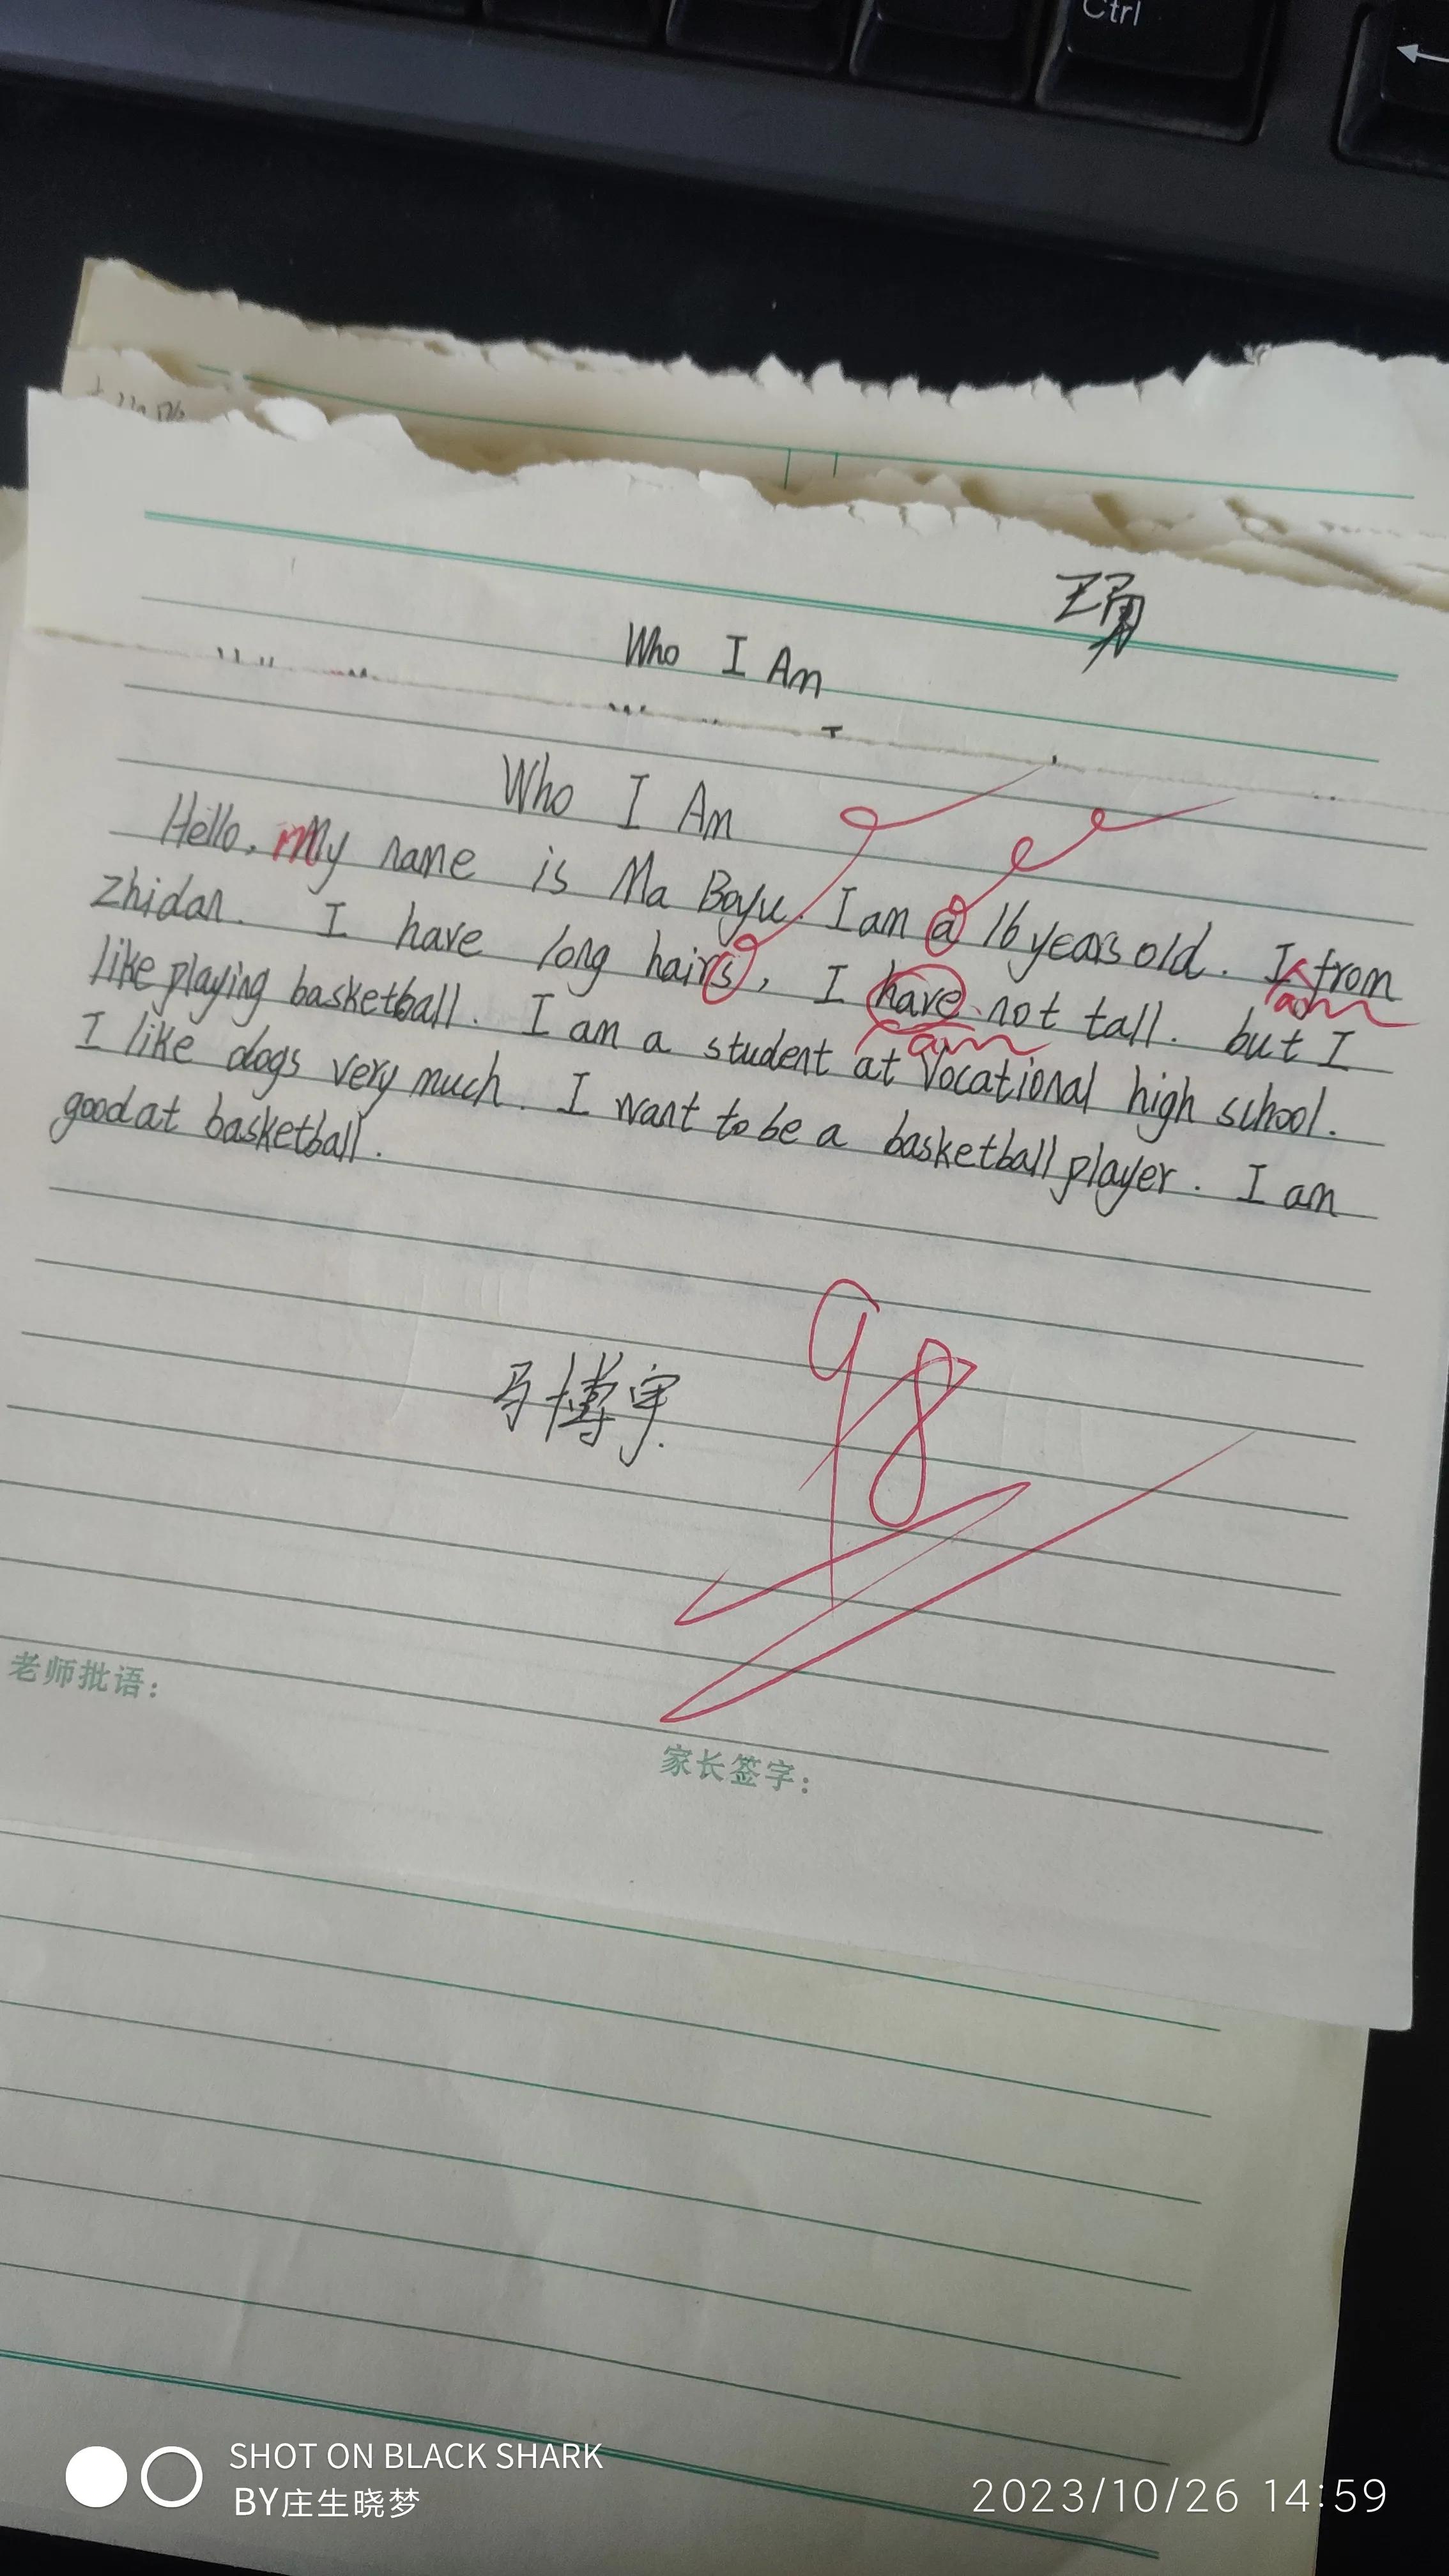 Ctrl
Who I Am
Who I Am
Hello, My name is Ma Boyu. I am a 16 years old. I from
am
zhidan. I have long hairs, I have not tall. but I
am
like playing basketball. I am a student at Vocational high school.
I like dogs very much. I want to be a basketball player. I am
good at basketball.
马博宇
98
老师批语:
家长签字:
SHOT ON BLACK SHARK
BY庄生晓梦
2023/10/26 14:59